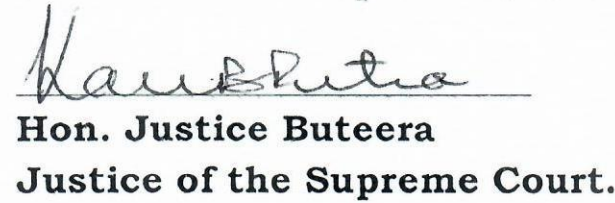 Hon. Justice Buteera
Justice of the Supreme Court.